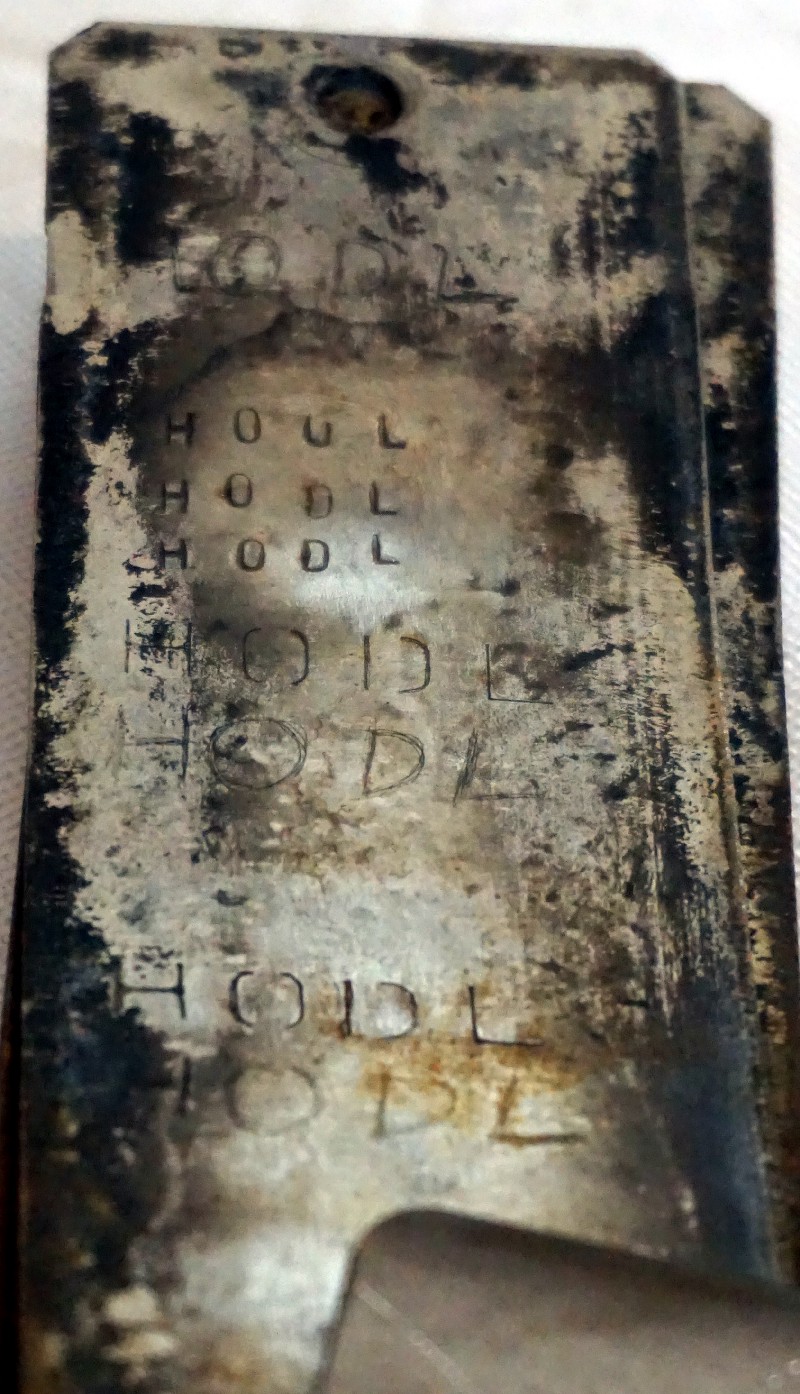 HODL
HODL
HODL
HODL
HODL
HODL
HODL
HODL